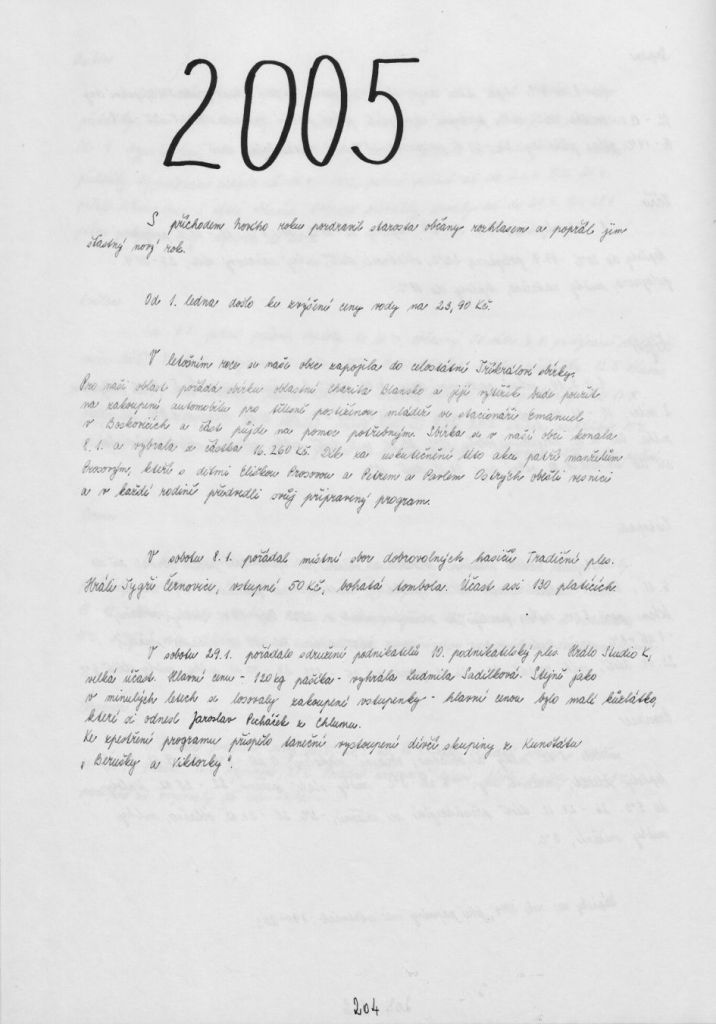 2005
S příchodem Nového roku pozdravil starosta občany rozhlasem a popřál jim
šťastný nový rok.
Od 1. ledna došlo ke zvýšení ceny vody na 23,90 Kč.
V letošním roce se naše obec zapojila do celostátní Tříkrálové sbírky.
Pro naši oblast pořádá sbírku oblastní charita Blansko a její výtěžek bude použit
na zakoupení automobilu pro tělesně postiženou mládež ve stacionáři Emanuel
v Boskovicích a část půjde na pomoc potřebným. Sbírka se v naší obci konala
8.1. a vybrala se částka 16.260 Kč. Dík za uskutečnění této akce patří manželům
Prosovým, kteří s dětmi Eliškou Prosovou a Petrem a Pavlem Ostrých obešli vesnici
a v každé rodině předvedli svůj připravený program.
V sobotu 8.1. pořádal místní sbor dobrovolných hasičů Tradiční ples.
Hráli Tygři Černovice, vstupné 50 Kč, bohatá tombola. Účast asi 130 platících.
V sobotu 29.1. pořádalo sdružení podnikatelů 10. podnikatelský ples. Hrálo Studio K,
velká účast. Hlavní cenu - 120 kg pašíka - vyhrála Ludmila Sadílková. Stejně jako
v minulých letech se losovaly zakoupené vstupenky - hlavní cenou bylo malé kůzlátko,
které si odnesl Jaroslav Pucháček z Chlumu.
Ke zpestření programu přispělo taneční vystoupení dívčí skupiny z Kunštátu
„Berušky a Viktorky".
204